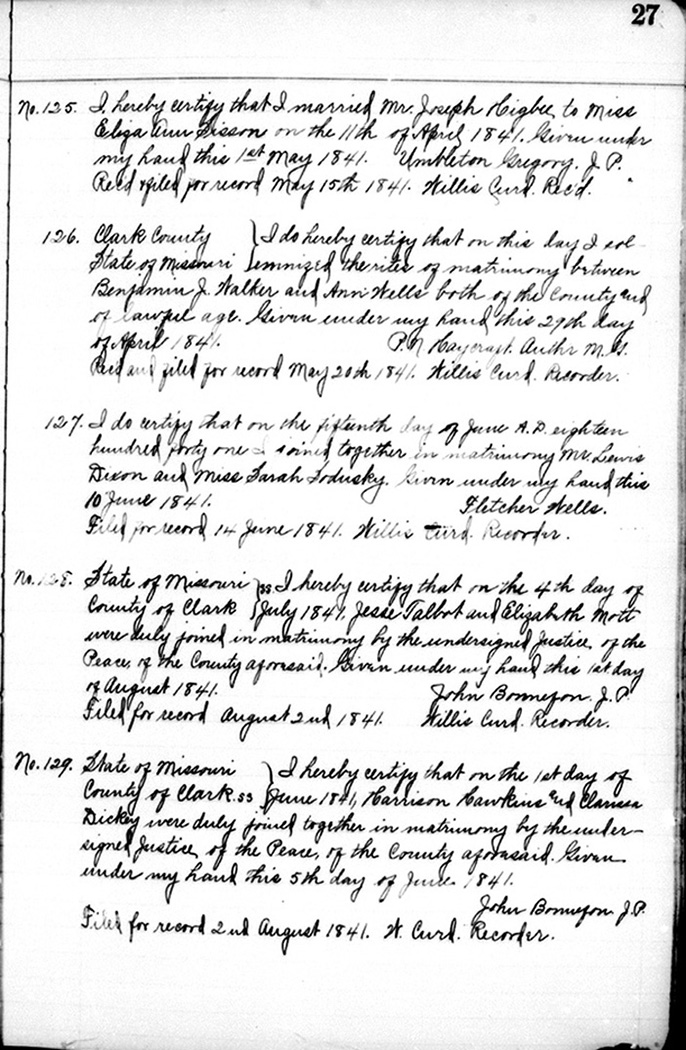 27
No. 125. I, hereby certify that I married Mr. Joseph Higbee, to Miss
Eliza Ann Sisson on the 11th of April, 1841. Given under
my hand this 1st May 1841. Umbleton Gregory. J. P.
Rec'd & filed for record May 15th 1841. Willis Curd. Rec'd.
126. Clark County } I do hereby certify that on this day I sol-
State of Missouri } emnized the rites of matrimony between
Benjamin J. Walker and Ann Wells both of the County and
of lawful age. Given under my hand this 29th day
of April 1841. P. N Haycraft. Authr M. G.
Rec'd and filed for record May 20th 1841. Willis Curd. Recorder.
127. I do certify that on the fifteenth day of June A.D. eighteen
hundred forty one I joined together in matrimony Mr. Lewis
Dixon and Miss Sarah Sodusky. Given under my hand this
10 June 1841. Fletcher Wells.
Filed for record 14 June 1841. Willis Curd. Recorder.
No. 128. State of Missouri } ss I hereby certify that on the 4th day of
County of Clark } July 1841, Jesse Talbot and Elizabeth Mott
were duly joined in matrimony by the undersigned Justice, of the
Peace, of the County aforesaid. Given under my hand this 1st day
of August 1841. John Bonnefon. J. P.
Filed for record August 2nd 1841. Willis Curd. Recorder.
No. 129. State of Missouri } I hereby certify that on the 1st day of
County of Clark. ss } June 1841, Harrison Hawkins and Clarissa
Dickey were duly joined together in matrimony by the under-
signed Justice, of the Peace, of the County aforesaid. Given
under my hand this 5th day of June 1841.
John Bonnefon J. P.
Filed for record 2nd August 1841. W. Curd. Recorder.